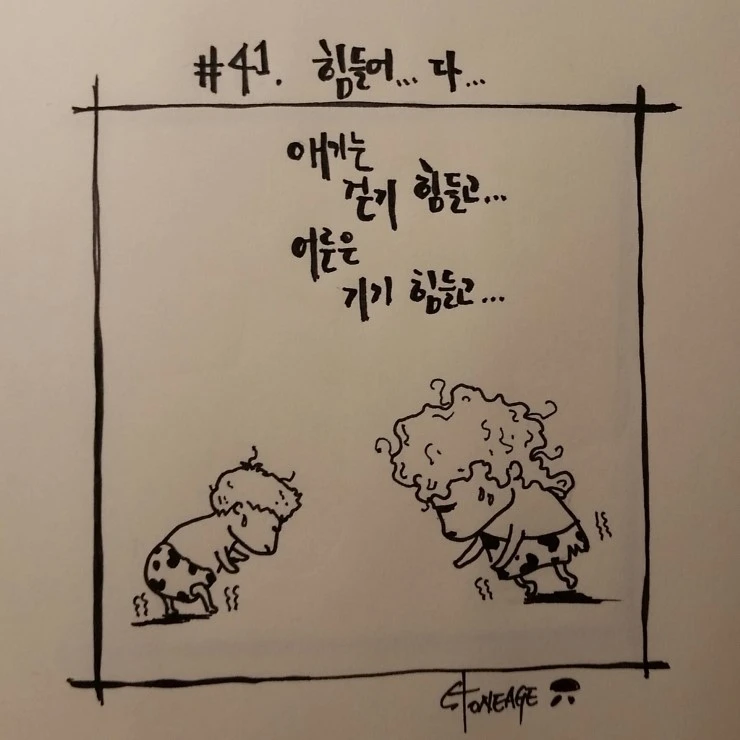 #41. 힘들어... 다...
애기는
걷기 힘들고...
어른은
기기 힘들고...
STONEAGE